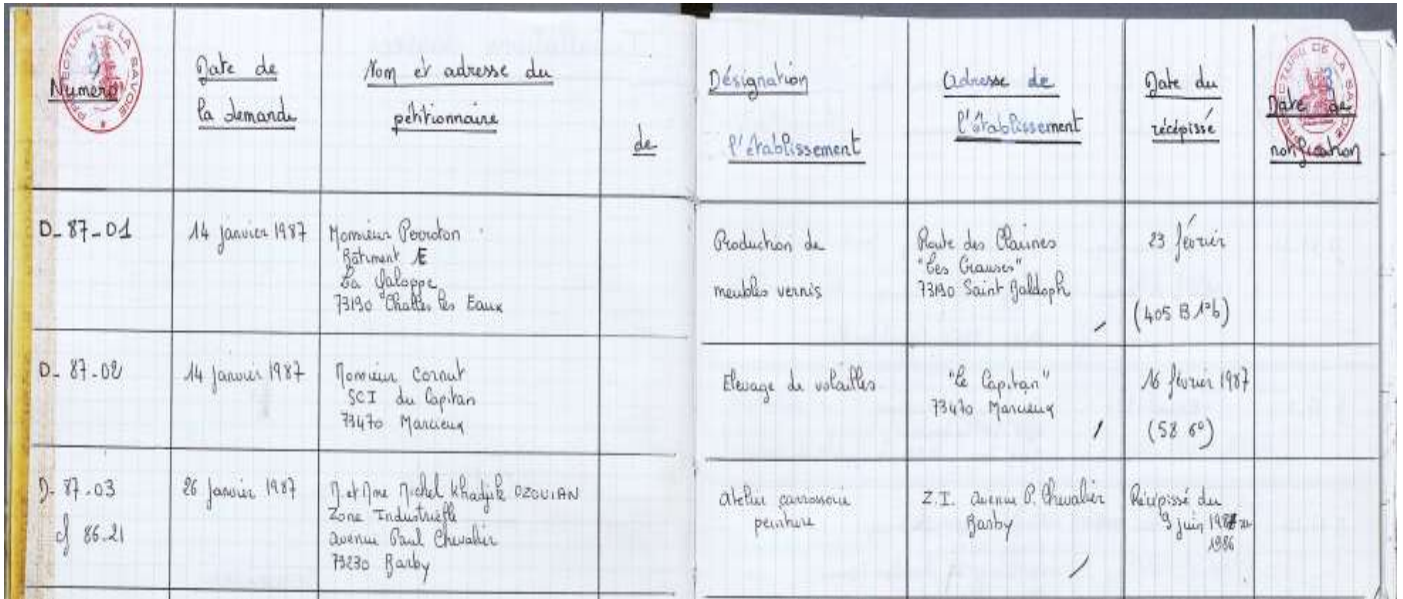 PRÉFECTURE DE LA SAVOIE
3
Numéro
Date de
la demande
Nom et adresse du
pétitionnaire
de
Désignation
l'établissement
Adresse de
l'établissement
Date du
récépissé
PRÉFECTURE DE LA SAVOIE
3
Date de
notification
D_ 87_01
14 janvier 1987
Monsieur Perroton
Bâtiment E
La Saloppe
73190 Challes les Eaux
Production de
meubles vernis
Route des Chaines
"Les Grauses"
73190 Saint Baldoph
23 février
(405 B 1°b)
D_ 87_02
14 janvier 1987
Monsieur Cornut
SCI du Capitan
73470 Marcieux
Elevage de volailles
"Le Capitan"
73470 Marcieux
16 février 1987
(58 6°)
D_ 87_03
cf 86.21
26 janvier 1987
M. et Mme Michel Khadjik OZOUIAN
Zone Industrielle
avenue Paul Chevalier
73230 Barby
atelier carrosserie
peinture
Z.I. avenue P. Chevalier
Barby
Récépissé du
9 juin 1987
1986